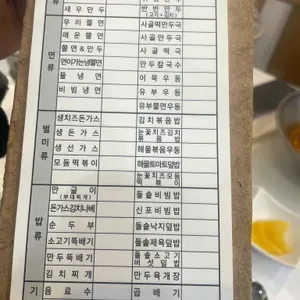 류
새우만두
반반만두
(고기+김치)
면류
우리쫄면
사골떡만두국
매운쫄면
사골만두국
쫄면&만두
사골떡국
면이가는냉쫄면
만두칼국수
물냉면
어묵우동
비빔냉면
유부우동
유부쫄면우동
별미류
생치즈돈가스
김치볶음밥
생돈가스
눈꽃치즈김치
볶음밥
생선가스
해물볶음우동
모듬떡볶이
해물토마토덮밥
눈꽃치즈모듬
떡볶이
밥류
만굴이
(부대찌개)
돌솥비빔밥
돈가스김치나베
신포비빔밥
순두부
돌솥낙지덮밥
소고기뚝배기
돌솥제육덮밥
만두뚝배기
돌솥소고기
버섯덮밥
김치찌개
만두육개장
기
음료수
곱배기